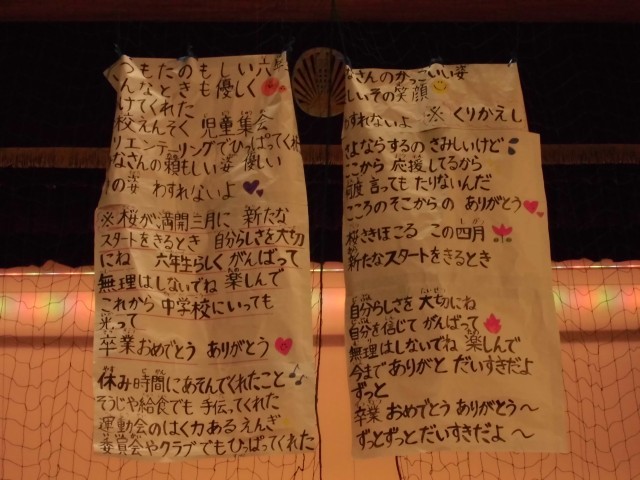 いつもたのもしい六年生
んなときも優しく
けてくれた
校えんそく 児童集会
リエンテーリングでひっぱってくれ
なさんの頼もしい姿 優しい
の姿 わすれないよ
※桜が満開三月に 新たな
スタートをきるとき 自分らしさを大切
にね 六年生らしく がんばって
無理はしないでね 楽しんで
これから 中学校にいっても
光って
卒業おめでとう ありがとう
休み時間にあそんでくれたこと
そうじや給食でも 手伝ってくれた
運動会のはく力あるえんぎ
委員会やクラブでもひっぱってくれた
なさんのかっこいい姿
しいその笑顔
わすれないよ ※くりかえし
さよならするの さみしいけど
ここから 応援してるから
何度 言っても たりないんだ
こころのそこからの ありがとう
桜さきほころ この四月
新たなスタートを きるとき
自分らしさを 大切にね
自分を信じて がんばって
無理はしないでね 楽しんで
今まで ありがと だいすきだよ
ずっと
卒業 おめでとう ありがとう〜
ずっとずっと だいすきだよ 〜